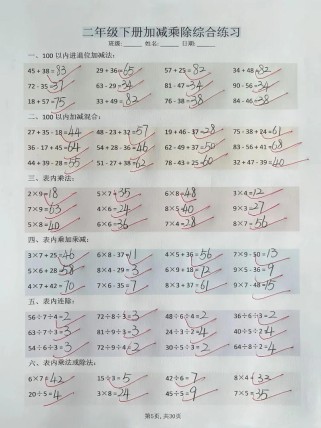 二年级下册加减乘除综合练习
班级:______ 姓名:______ 日期:______
一、100以内进退位加减法:
45 + 38 = 83 29 + 36 = 65 57 + 25 = 82 34 + 48 = 82
72 - 35 = 37 63 - 29 = 34 81 - 47 = 34 90 - 56 = 34
18 + 57 = 75 33 + 49 = 82 76 - 38 = 38 84 - 46 = 38
二、100以内加减混合:
27 + 35 - 18 = 44 48 - 23 + 32 = 57 19 + 46 - 37 = 28 75 - 38 + 24 = 61
36 - 17 + 45 = 64 54 + 28 - 36 = 46 62 - 49 + 37 = 50 83 - 56 + 31 = 58
44 + 39 - 28 = 55 51 - 27 + 38 = 62 78 - 43 + 25 = 60 32 + 47 - 39 = 40
三、表内乘法:
2×9 = 18 5×7 = 35 6×8 = 48 3×4 = 12
7×9 = 63 4×6 = 24 8×5 = 40 9×3 = 27
5×8 = 40 6×6 = 36 7×4 = 28 8×7 = 56
四、表内乘加乘减:
3×7 + 25 = 46 6×8 - 37 = 11 4×5 + 36 = 56 7×9 - 50 = 13
5×6 + 28 = 58 8×4 - 29 = 3 2×9 + 18 = 9×5 - 36 = 9
4×7 + 42 = 70 7×6 - 35 = 7 8×3 + 37 = 61 9×7 - 48 = 15
五、表内连除:
56÷7÷4 = 2 72÷8÷3 = 3 48÷6÷4 = 2 36÷6÷3 = 2
63÷7÷3 = 3 81÷9÷3 = 3 24÷3÷2 = 4 40÷5÷2 = 4
54÷6÷3 = 3 72÷9÷4 = 2 30÷5÷3 = 2 64÷8÷2 = 4
六、表内乘法或除法:
6×7 = 42 15÷3 = 5 42÷6 = 7 8×4 = 32
20÷5 = 4 3×8 = 24 45÷5 = 9 7×5 = 35
第5页, 共30页